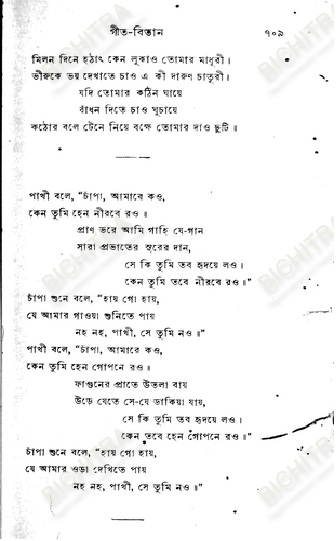 গীত-বিতান ৭০৯
মিলন দিনে হঠাৎ কেন লুকাও তোমার মাধুরী।
ভীরুকে ভয় দেখাতে চাও এ কী দারুণ চাতুরী।
যদি তোমার কঠিন ঘায়ে
বাঁধন দিতে চাও ঘুচায়ে
কঠোর বলে টেনে নিয়ে বক্ষে তোমার দাও ছুটি॥
পাখী বলে, “চাঁপা, আমারে কও,
কেন তুমি হেন নীরবে রও॥
প্রাণ ভরে আমি গাহি যে-গান
সারা প্রভাতের সুরের দান,
সে কি তুমি তব হৃদয়ে লও।
কেন তুমি তবে নীরবে রও॥”
চাঁপা শুনে বলে, “হায় গো হায়,
যে আমার গাওয়া শুনিতে পায়
নহ নহ, পাখী, সে তুমি নও॥”
পাখী বলে, “চাঁপা, আমারে কও,
কেন তুমি হেন গোপনে রও॥
ফাগুনের প্রাতে উতলা বায়
উড়ে যেতে সে-যে ডাকিয়া যায়,
সে কি তুমি তব হৃদয়ে লও।
কেন তবে হেন গোপনে রও॥”
চাঁপা শুনে বলে, “হায় গো হায়,
যে আমার ওড়া দেখিতে পায়
নহ নহ, পাখী, সে তুমি নও॥”
BICHITRA
BICHITRA
BICHITRA
BICHITRA